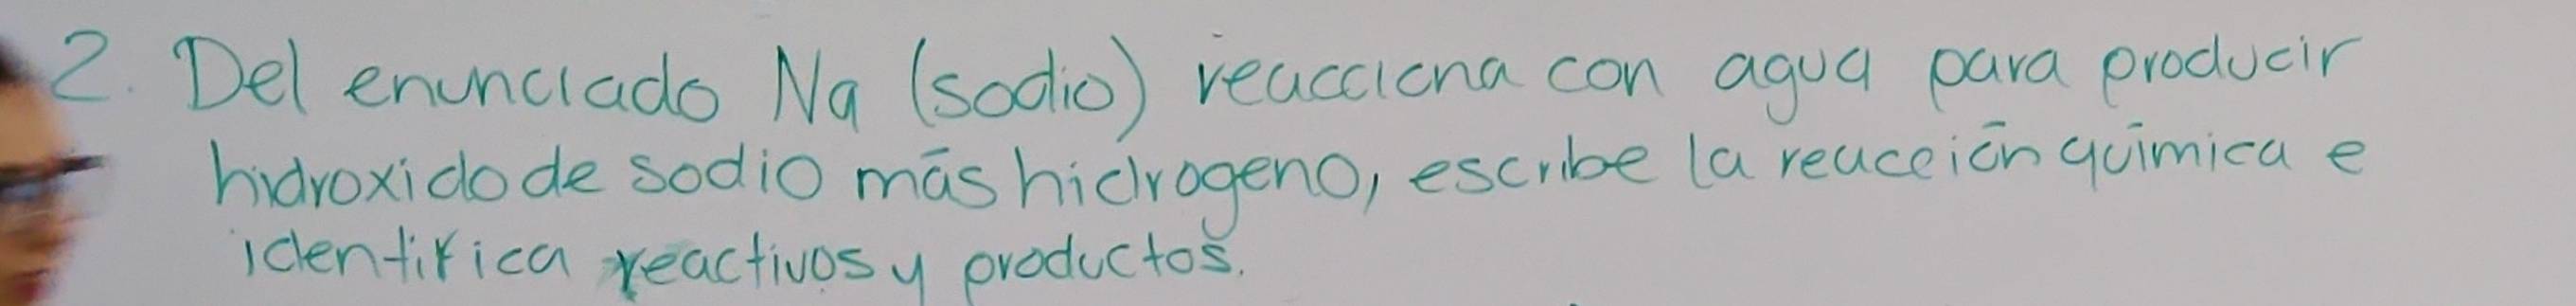 2. Del enunciado Na (sodio) reacciona con agua para producir
hidroxido de sodio más hidrogeno, escribe la reacción química e
identifica reactivos y productos.